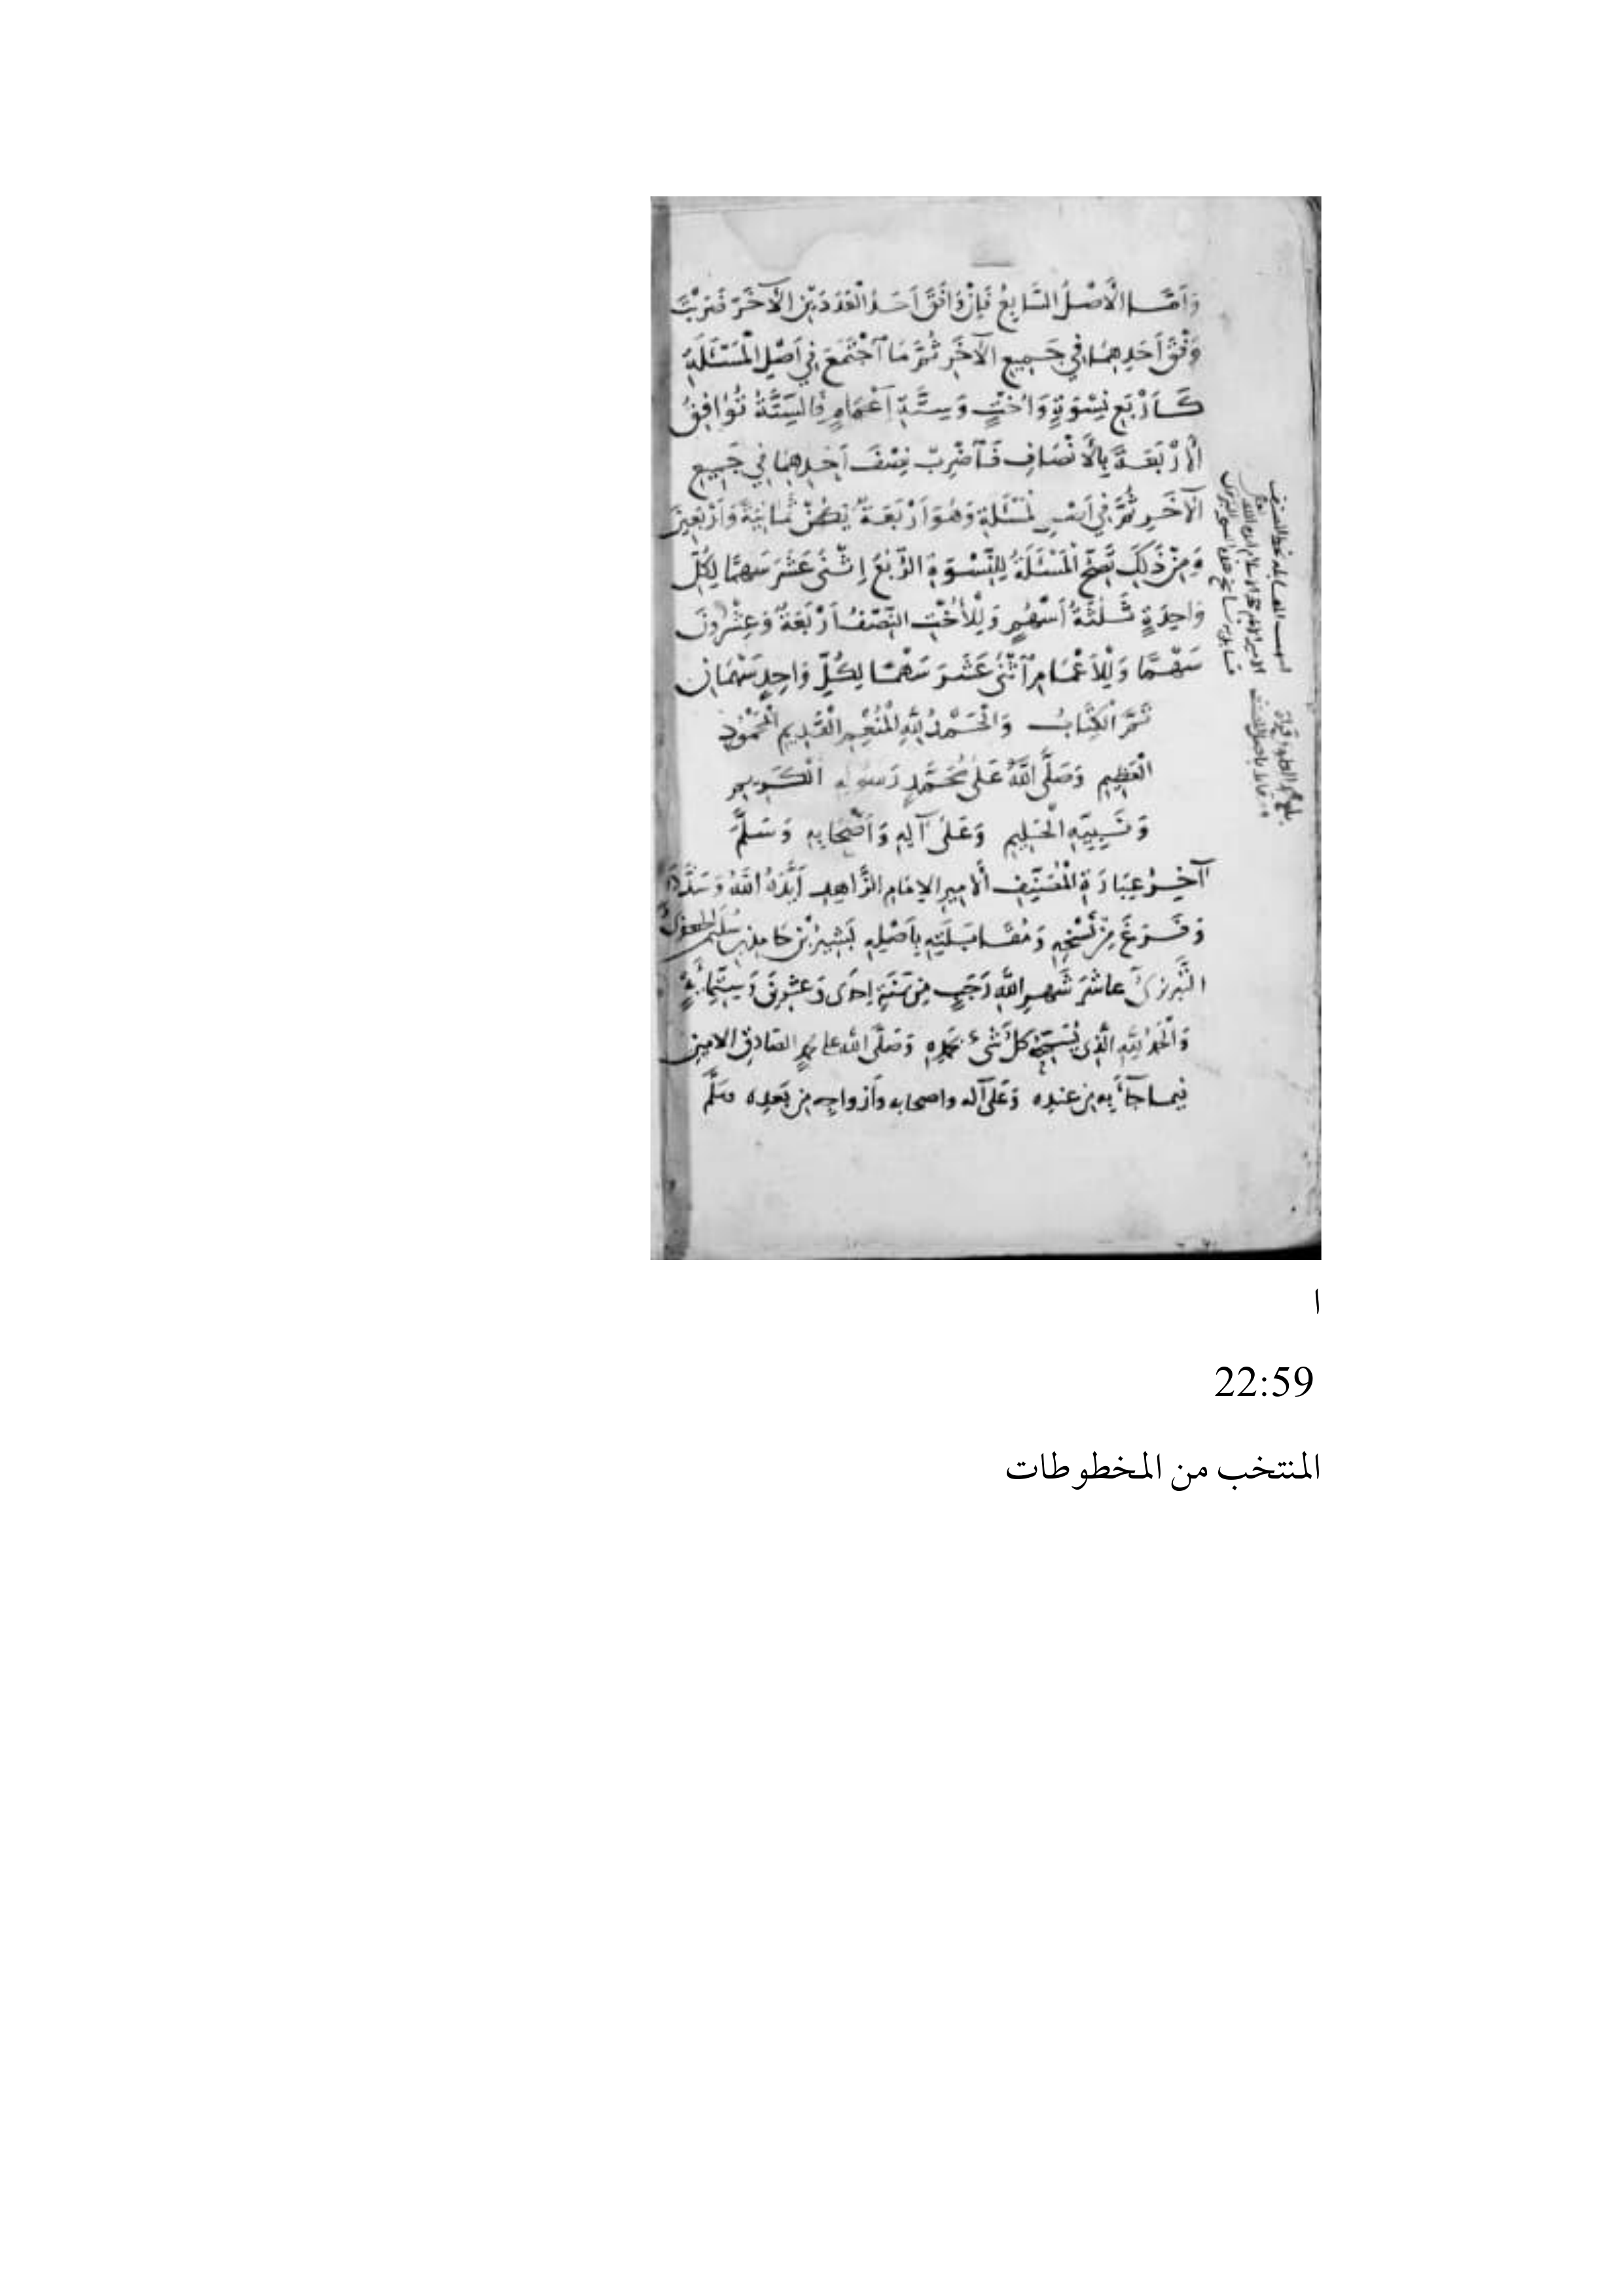 وَاَمَّا الْاَصْلُ السَّابِعُ فَاِنْ وَافَقَ اَحَدُ الْعَدَدَيْنِ الْآخَرَ ضَرَبْتَ
وَفْقَ اَحَدِهِمَا فِي جَمِيعِ الْآخَرِ ثُمَّ مَا اجْتَمَعَ فِي اَصْلِ الْمَسْئَلَةِ
كَاَرْبَعِ نِسْوَةٍ وَاُخْتٍ وَسِتَّةِ اَعْمَامٍ فَالسِّتَّةُ تُوَافِقُ
الْاَرْبَعَةَ بِالْاَنْصَافِ فَاضْرِبْ نِصْفَ اَحَدِهِمَا فِي جَمِيعِ
الْآخَرِ ثُمَّ فِي اَصْلِ الْمَسْئَلَةِ وَهُوَ اَرْبَعَةٌ يَكُنْ ثَمَانِيَةً وَاَرْبَعِينَ
وَمِنْ ذَلِكَ تَصِحُّ الْمَسْئَلَةُ لِلنِّسْوَةِ الرُّبْعُ اِثْنَى عَشَرَ سَهْمًا لِكُلِّ
وَاحِدَةٍ ثَلٰثَةُ اَسْهُمٍ وَلِلْاُخْتِ النِّصْفُ اَرْبَعَةٌ وَعِشْرُونَ
سَهْمًا وَلِلْاَعْمَامِ اثْنَى عَشَرَ سَهْمًا لِكُلِّ وَاحِدٍ سَهْمَانِ
تَمَّ الْكِتَابُ وَالْحَمْدُ لِلَّهِ الْمُنْعِمِ الْقَدِيمِ الْمَحْمُودِ
الْعَظِيمِ وَصَلَّى اللَّهُ عَلَى مُحَمَّدٍ رَسُولِهِ الْكَرِيمِ
وَنَبِيِّهِ الْحَلِيمِ وَعَلَى آلِهِ وَاَصْحَابِهِ وَسَلَّمَ
آخِرُ عِبَارَةِ الْمُصَنِّفِ الْاَمِيرِ الْاِمَامِ الزَّاهِدِ اَيَّدَهُ اللَّهُ وَسَدَّدَهُ
وَفَرَغَ مِنْ نَسْخِهِ وَمُقَابَلَتِهِ بِاَصْلِهِ بَشِيرُ بْنُ حَامِدِ بْنِ سُلَيْمٰنَ
التَّبْرِزِيُّ عَاشِرَ شَهْرِ اللَّهِ رَجَبٍ مِنْ سَنَةِ اِحْدَى وَعِشْرِينَ وَسِتِّمِائَةٍ
وَالْحَمْدُ لِلَّهِ الَّذِي يُسَبِّحُ كُلُّ شَىْءٍ بِحَمْدِهِ وَصَلَّى اللَّهُ عَلَى مُحَمَّدٍ الصَّادِقِ الْاَمِينِ
فِيمَا جَآءَ بِهِ مِنْ عِنْدِهِ وَعَلَى آلِهِ وَاَصْحَابِهِ وَاَزْوَاجِهِ مِنْ بَعْدِهِ وَسَلَّمَ
ا
22:59
المنتخب من المخطوطات